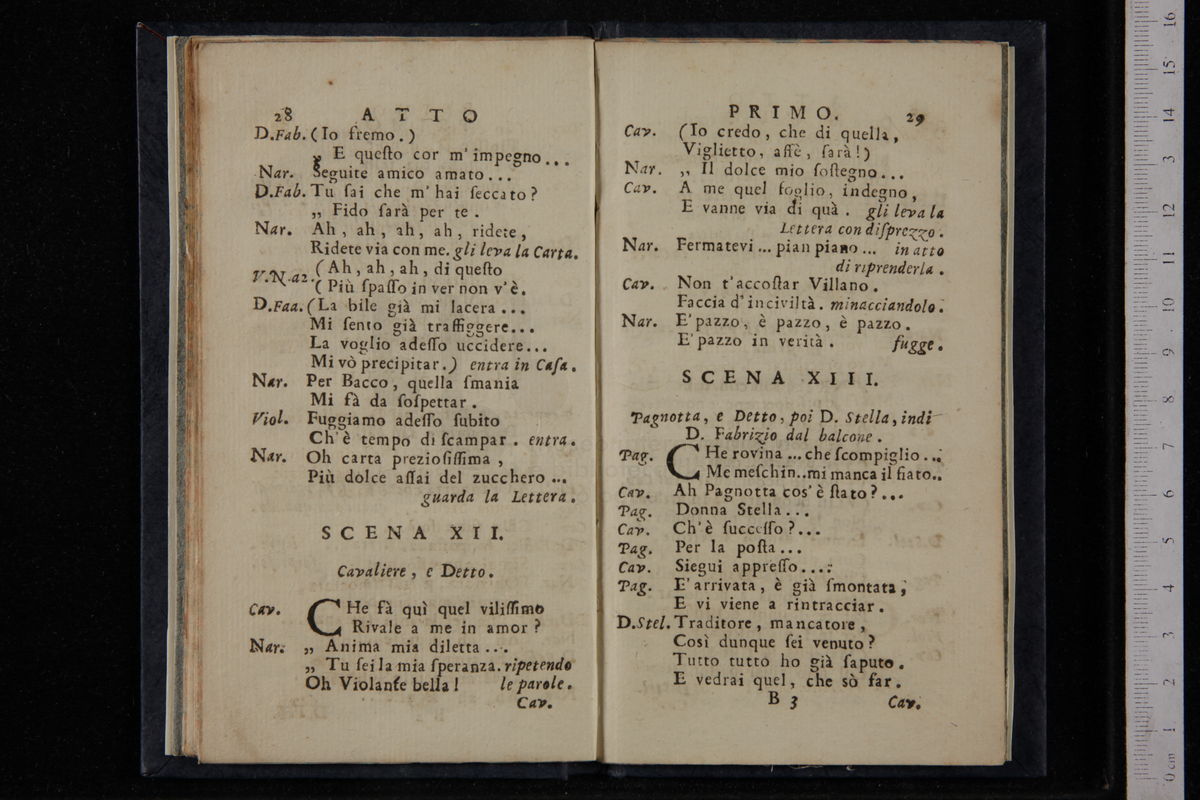 28 ATTO
D.Fab. (Io fremo.)
„ E queſto cor m' impegno...
Nar. Seguite amico amato...
D.Fab. Tu ſai che m' hai ſeccato?
„ Fido ſarà per te.
Nar. Ah, ah, ah, ah, ridete,
Ridete via con me. gli leva la Carta.
V.N.a2. (Ah, ah, ah, di queſto
( Più ſpaſſo in ver non v'è.
D.Faa. (La bile già mi lacera...
Mi ſento già traffiggere...
La voglio adeſſo uccidere...
Mi vò precipitar.) entra in Caſa.
Nar. Per Bacco, quella ſmania
Mi fà da ſoſpettar.
Viol. Fuggiamo adeſſo ſubito
Ch'è tempo di ſcampar. entra.
Nar. Oh carta prezioſiſſima,
Più dolce aſſai del zucchero...
guarda la Lettera.
SCENA XII.
Cavaliere, e Detto.
Cav. CHe fà quì quel viliſſimo
Rivale a me in amor?
Nar. „ Anima mia diletta...
„ Tu ſei la mia ſperanza. ripetendo
Oh Violante bella! le parole.
Cav.
PRIMO. 29
Cav. (Io credo, che di quella,
Viglietto, affè, ſarà!)
Nar. „ Il dolce mio ſoſtegno...
Cav. A me quel foglio, indegno,
E vanne via di quà. gli leva la
Lettera con diſprezzo.
Nar. Fermatevi... pian piano... in atto
di riprenderla.
Cav. Non t'accoſtar Villano.
Faccia d'inciviltà. minacciandolo.
Nar. E' pazzo, è pazzo, è pazzo.
E' pazzo in verità. fugge.
SCENA XIII.
Pagnotta, e Detto, poi D. Stella, indi
D. Fabrizio dal balcone.
Pag. CHe rovina... che ſcompiglio...
Me meſchin.. mi manca il fiato..
Cav. Ah Pagnotta cos'è ſtato?...
Pag. Donna Stella...
Cav. Ch'è ſucceſſo?...
Pag. Per la poſta...
Cav. Siegui appreſſo....
Pag. E' arrivata, è già ſmontata;
E vi viene a rintracciar.
D.Stel. Traditore, mancatore,
Così dunque ſei venuto?
Tutto tutto ho già ſaputo.
E vedrai quel, che sò far.
B 3 Cav.
0 cm 1 2 3 4 5 6 7 8 9 10 11 12 13 14 15 16